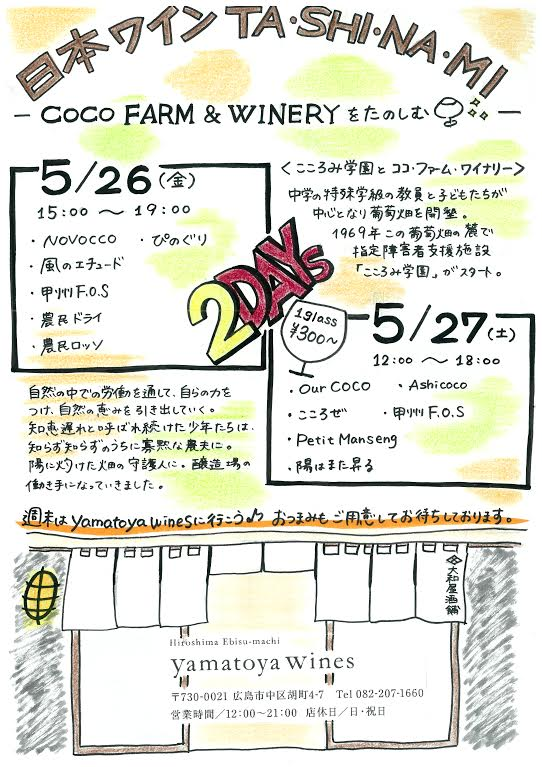 日本ワイン TA・SHI・NA・MI
― COCO FARM & WINERY をたのしむ ―
5/26(金)
15:00 ～ 19:00
・NOVOCCO ・ぴのぐり
・風のエチュード
・甲州F.O.S
・農民ドライ
・農民ロッソ
<こころみ学園とココ・ファーム・ワイナリー>
中学の特殊学級の教員と子どもたちが
中心となり葡萄畑を開墾。
1969年この葡萄畑の麓で
指定障害者支援施設
「こころみ学園」がスタート。
2DAYs
1glass
¥300～
5/27(土)
12:00 ～ 18:00
・Our COCO ・Ashicoco
・こころぜ ・甲州F.O.S
・Petit Manseng
・陽はまた昇る
自然の中での労働を通して、自らの力を
つけ、自然の恵みを引き出していく。
知恵遅れと呼ばれ続けた少年たちは、
知らず知らずのうちに寡黙な農夫に。
陽に灼けた畑の守護人に。醸造場の
働き手になっていきました。
週末はyamatoya winesに行こう♪ おつまみもご用意してお待ちしております。
大和屋酒舗
Hiroshima Ebisu-machi
yamatoya Wines
〒730-0021 広島市中区胡町4-7 Tel 082-207-1660
営業時間／12:00～21:00 店休日／日・祝日